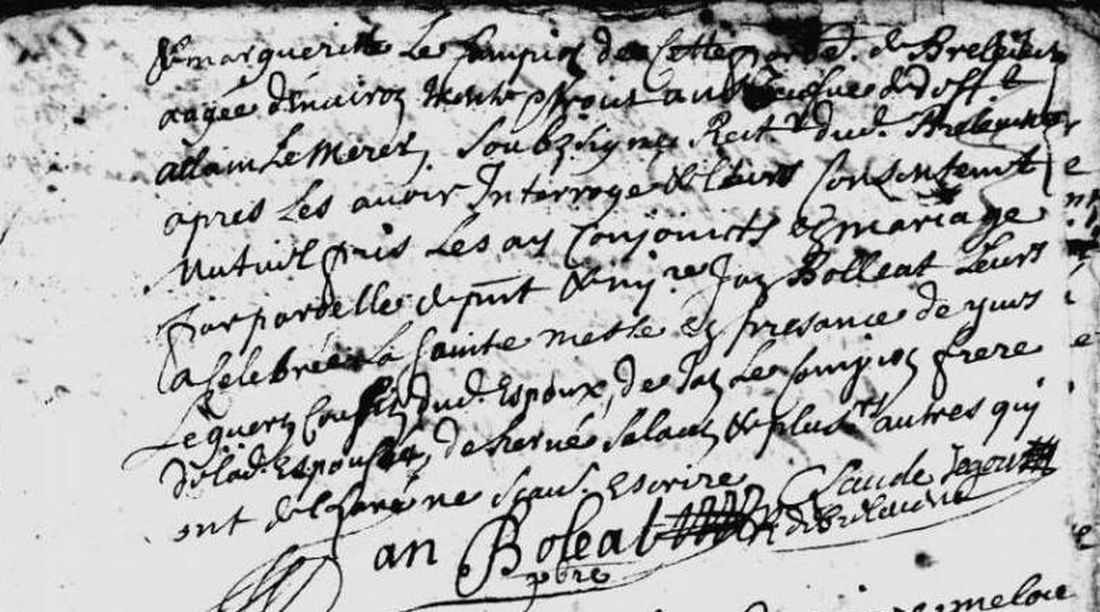 & marguerite Le Compion de Cette parse. de Brelevenez
aagée d'enuiron trente
allain Le Merer, Soubzsigné Rect.r dud. Brelevenez
apres Les auoir Interroge & leurs Consentemt
Mutuel pris Les ay Conjoincts en mariage
par parolle de pnt & my.re Jan Bolleat Leurs
a Celebrée La Sainte messe en presance de yues
Le quern Cousin dud. Espoux, de Jan Le Compion frere
de lad. Espouse, de herué Salaun & plusrs autres qui
ont declaré ne scau. Escrire Claude Jegou
an Boleat R. de brelauene
pbre